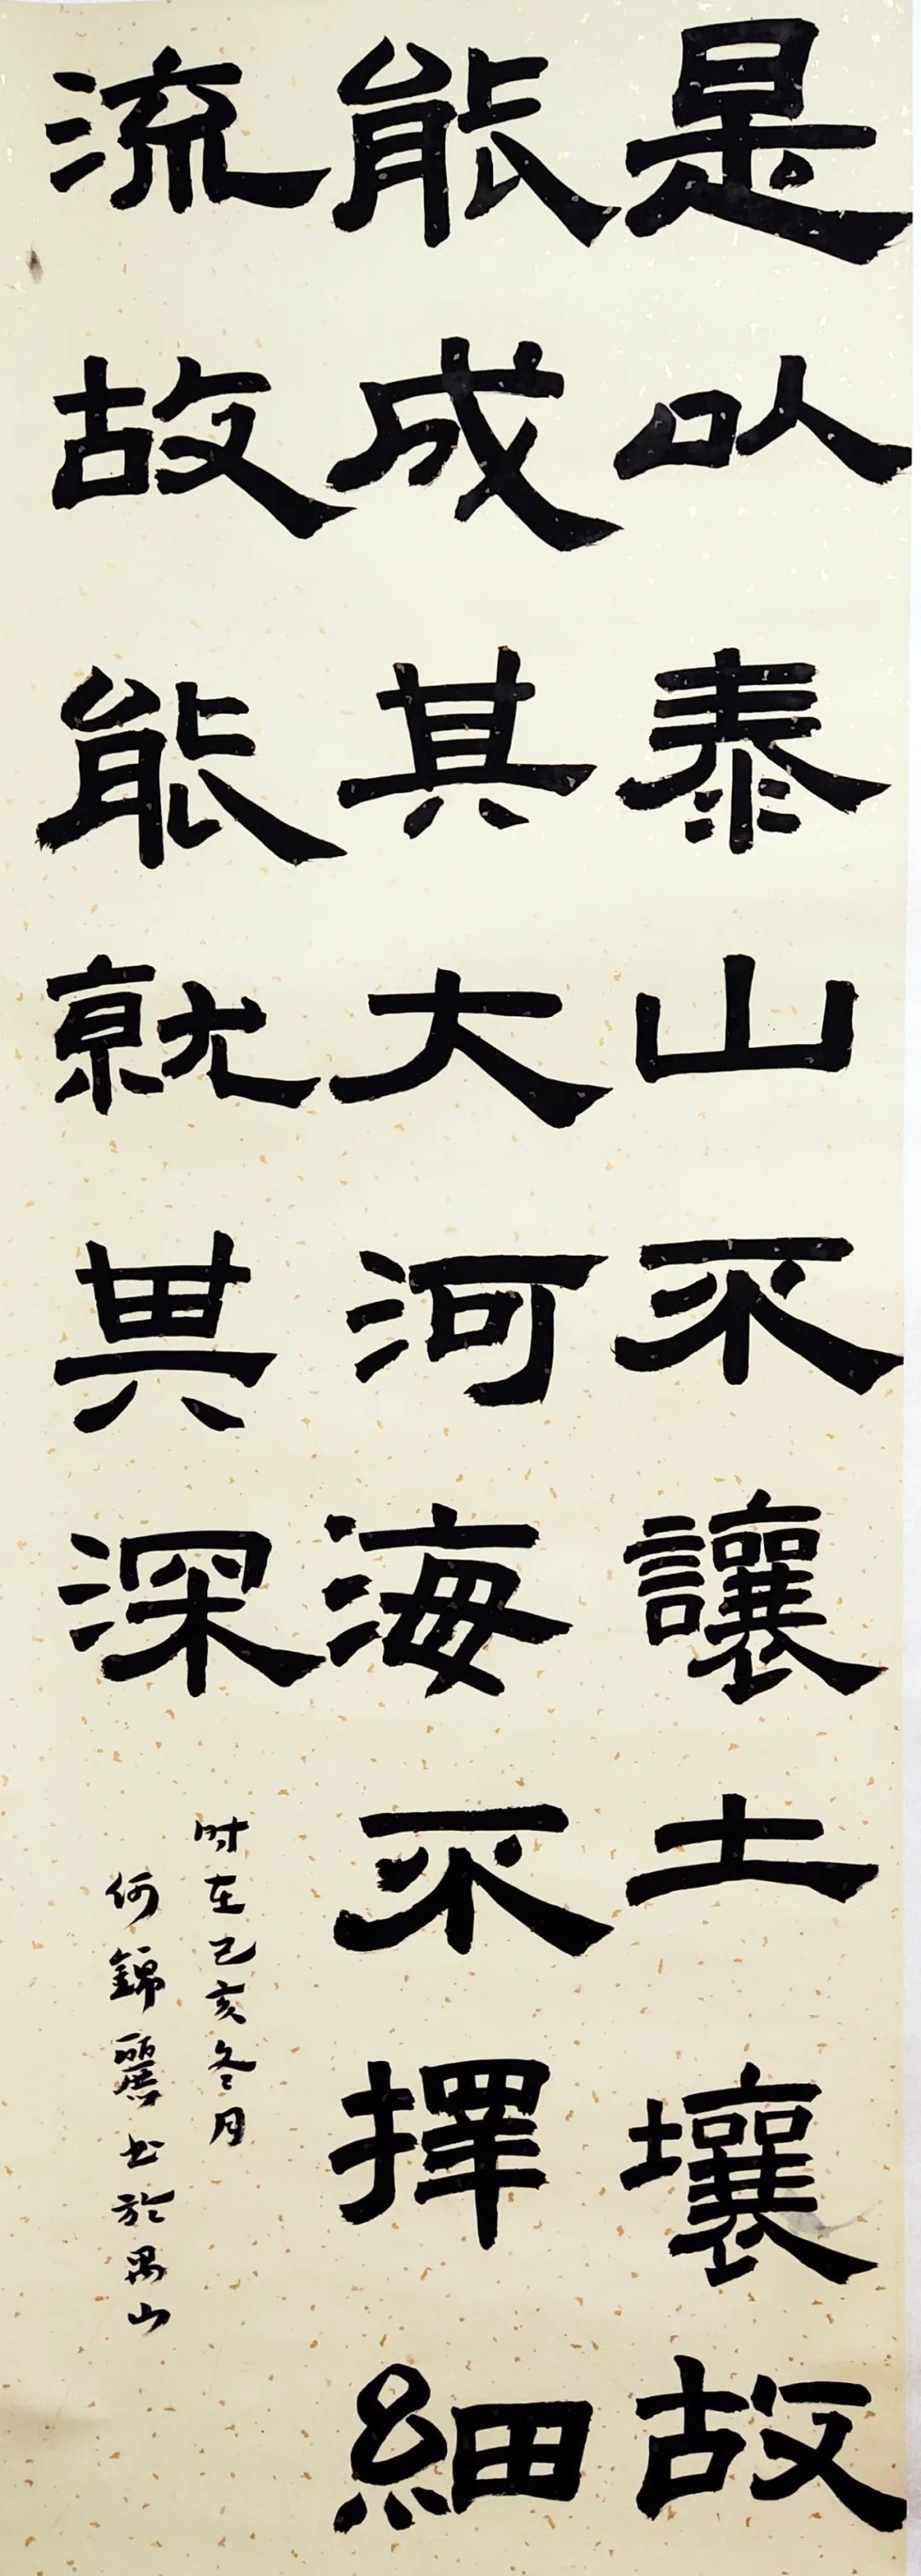 是以泰山不讓土壤故
能成其大河海不擇細
流故能就其深
时在己亥冬月
何錦麗书於禺山